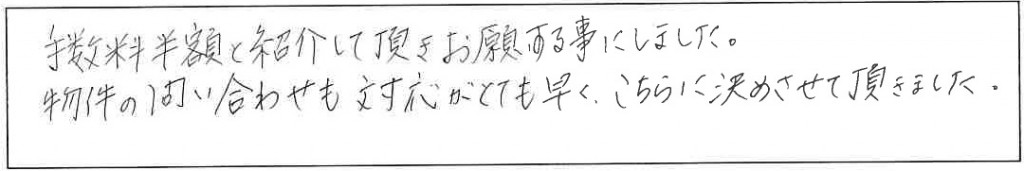 手数料半額と紹介して頂きお願する事にしました。
物件の問い合わせも対応がとても早く、こちらに決めさせて頂きました。